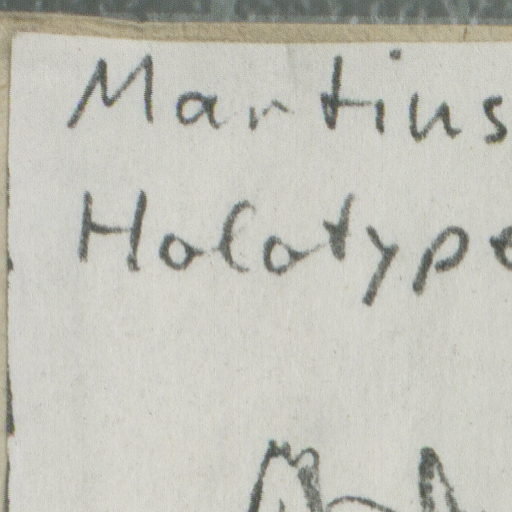 Martius
Holotype